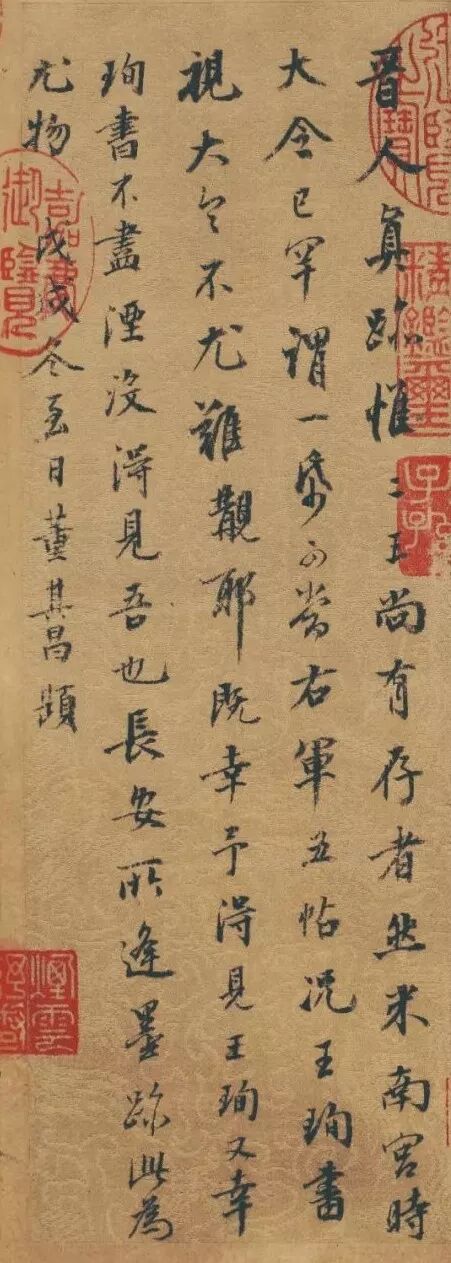 晉人真跡惟二王尚有存者然米南宮時
大令已罕謂一紙可當右軍五帖況王珣書
視大令不尤難覯耶既幸予得見王珣又幸
珣書不盡湮沒得見吾也長安所逢墨跡此為
尤物 戊戌冬至日董其昌題
精鑑璽
子孫
嘉慶
御覽